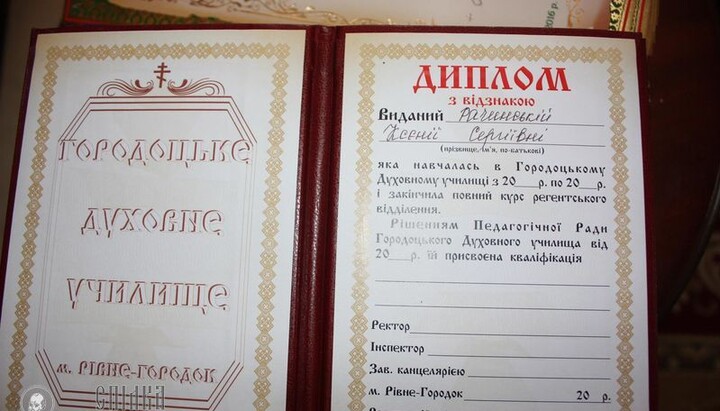 2016 р.
ГОРОДОЦЬКЕ
ДУХОВНЕ
УЧИЛИЩЕ
м. РІВНЕ-ГОРОДОК
СПЖКА
ДИПЛОМ
з відзнакою
Виданий Рачинській
Ксенії Сергіївні
(прізвище, ім'я, по-батькові)
яка навчалась в Городоцькому
Духовному училищі з 20___р. по 20___р.
і закінчила повний курс регентського
відділення.
Рішенням Педагогічної Ради
Городоцького Духовного училища від
20___р. їй присвоєна кваліфікація
Ректор
Інспектор
Зав. канцелярією
м. Рівне-Городок 20 р.